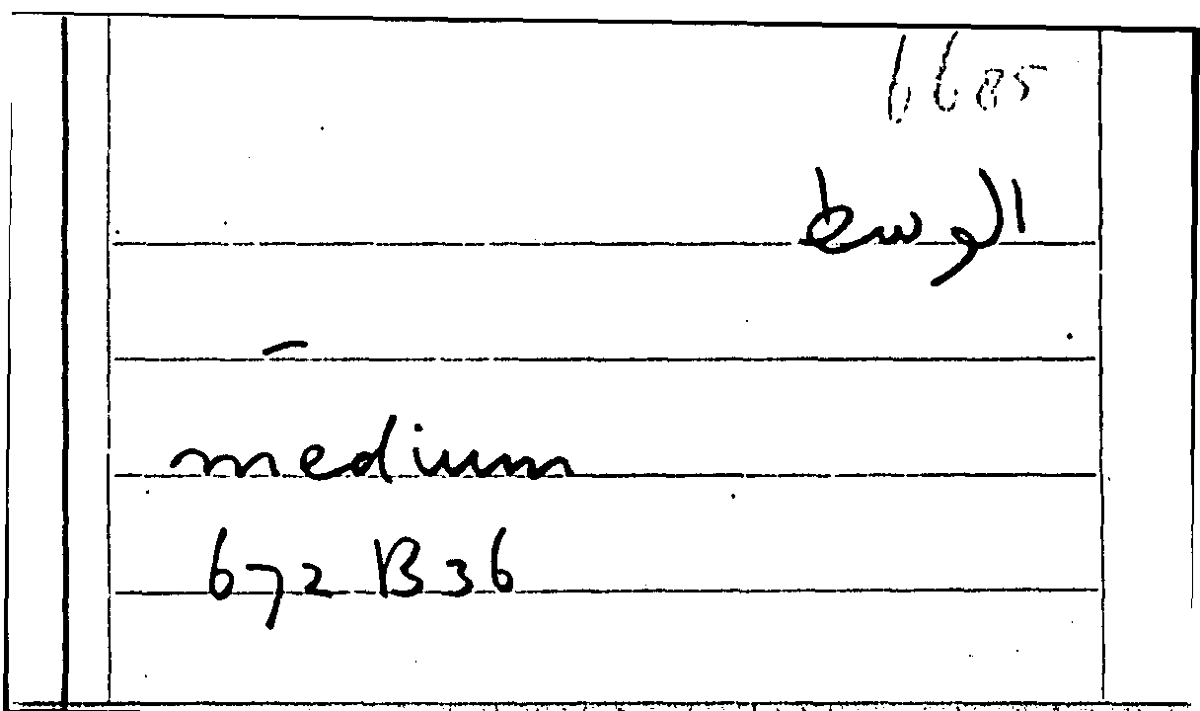 6685
الوسط
medium
672 B36